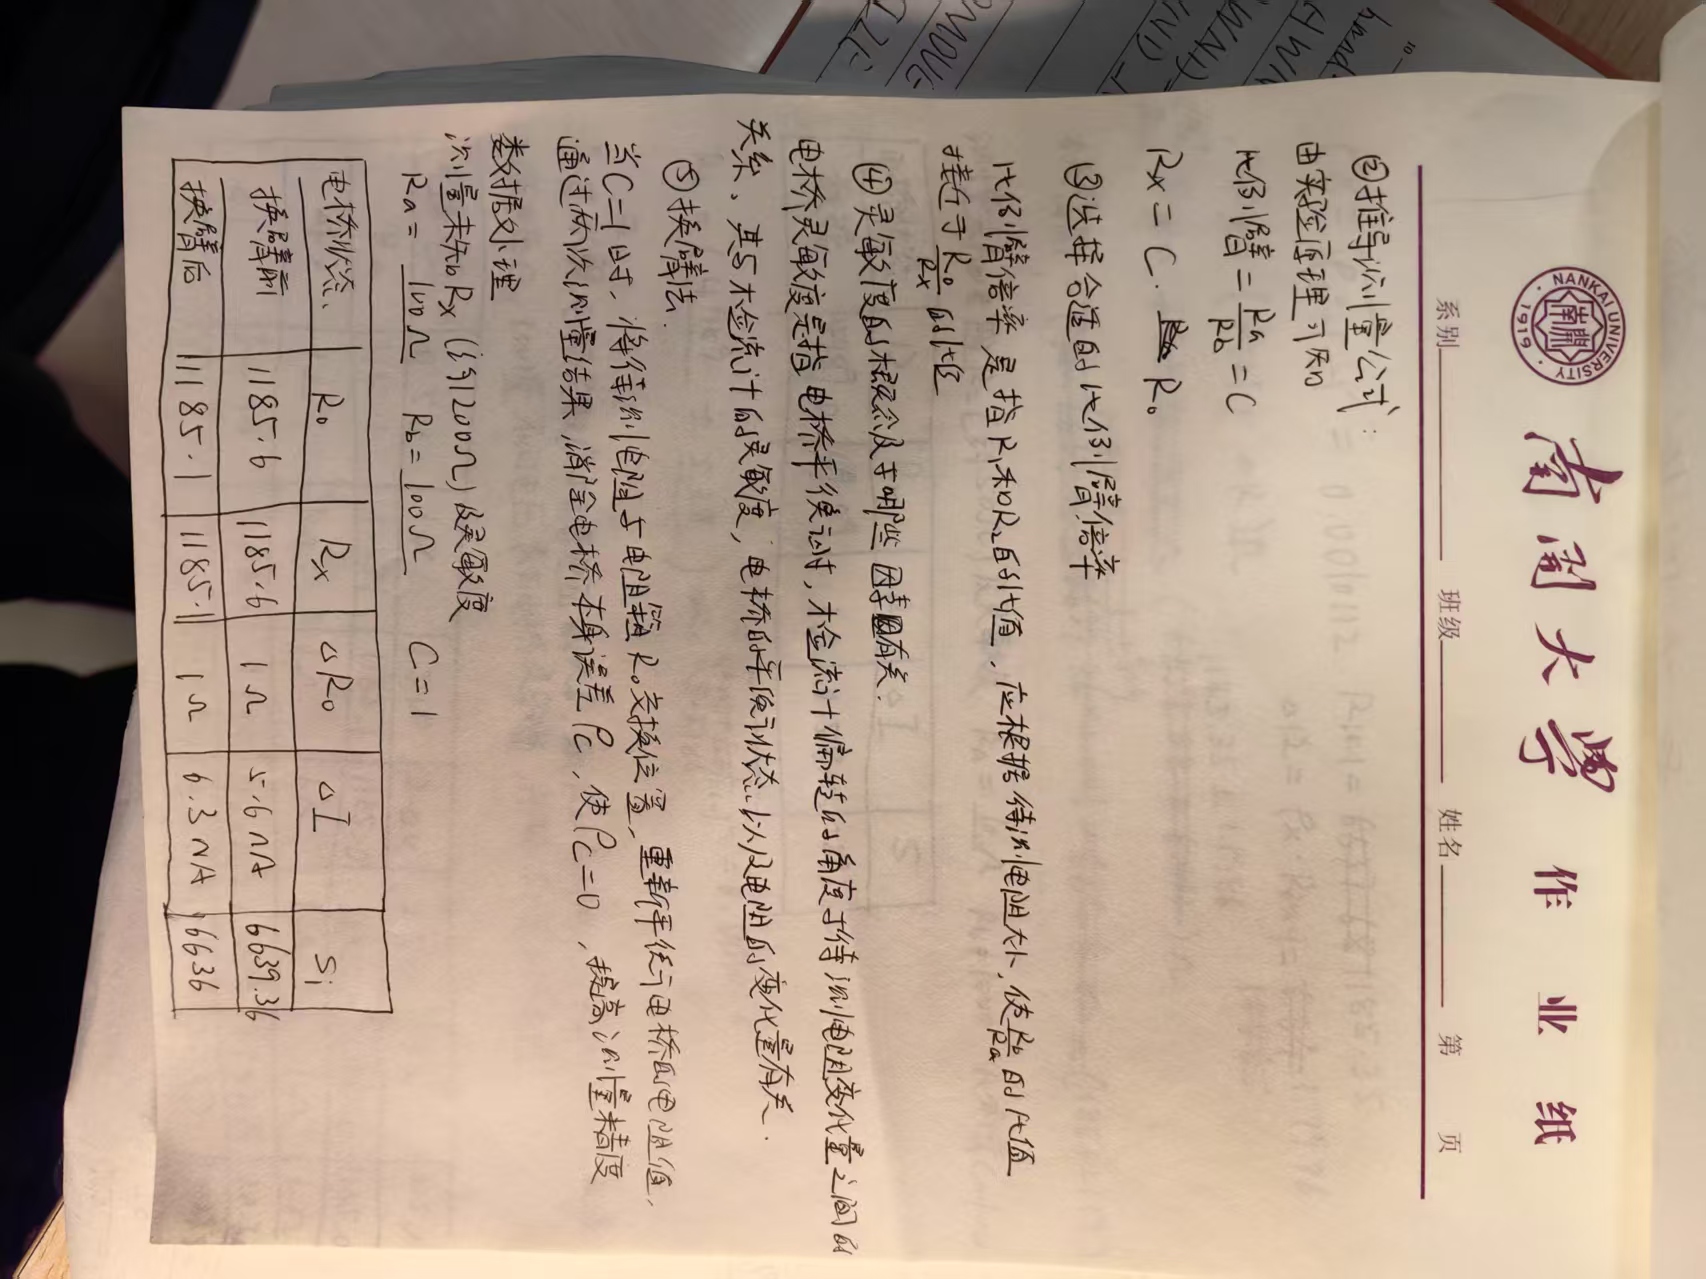 南开大学 作业纸
NANKAI UNIVERSITY 1919
系别 班级 姓名 第 页
②推导测量公式:
由实验原理可知
比例臂 = Ra/Rb = C
Rx = C · R₀
③选择合适的比例臂倍率
比例臂倍率是指R₁和R₂的比值,应根据待测电阻大小,使Rb/Ra的比值
接近于R₀/Rx的比值
④灵敏度的概念及于哪些因素有关.
电桥灵敏度是指电桥平衡时,检流计偏转的角度于待测电阻变化量之间的
关系,其与检流计的灵敏度,电桥的平衡状态以及电阻的变化量有关.
⑤换臂法.
当C=1时,将待测电阻与电阻箱R₀交换位置,重新平衡电桥的电阻值,
通过两次测量结果,消除电桥本身误差ρc,使ρc=0,提高测量精度
数据处理
测量未知Rx(约1200Ω)及灵敏度
Ra = 100Ω Rb = 100Ω C=1
电桥状态 R₀ Rx △R₀ △I Si
换臂前 1185.6 1185.6 1Ω 5.6nA 6639.36
换臂后 1185.1 1185.1 1Ω 6.3nA 6636